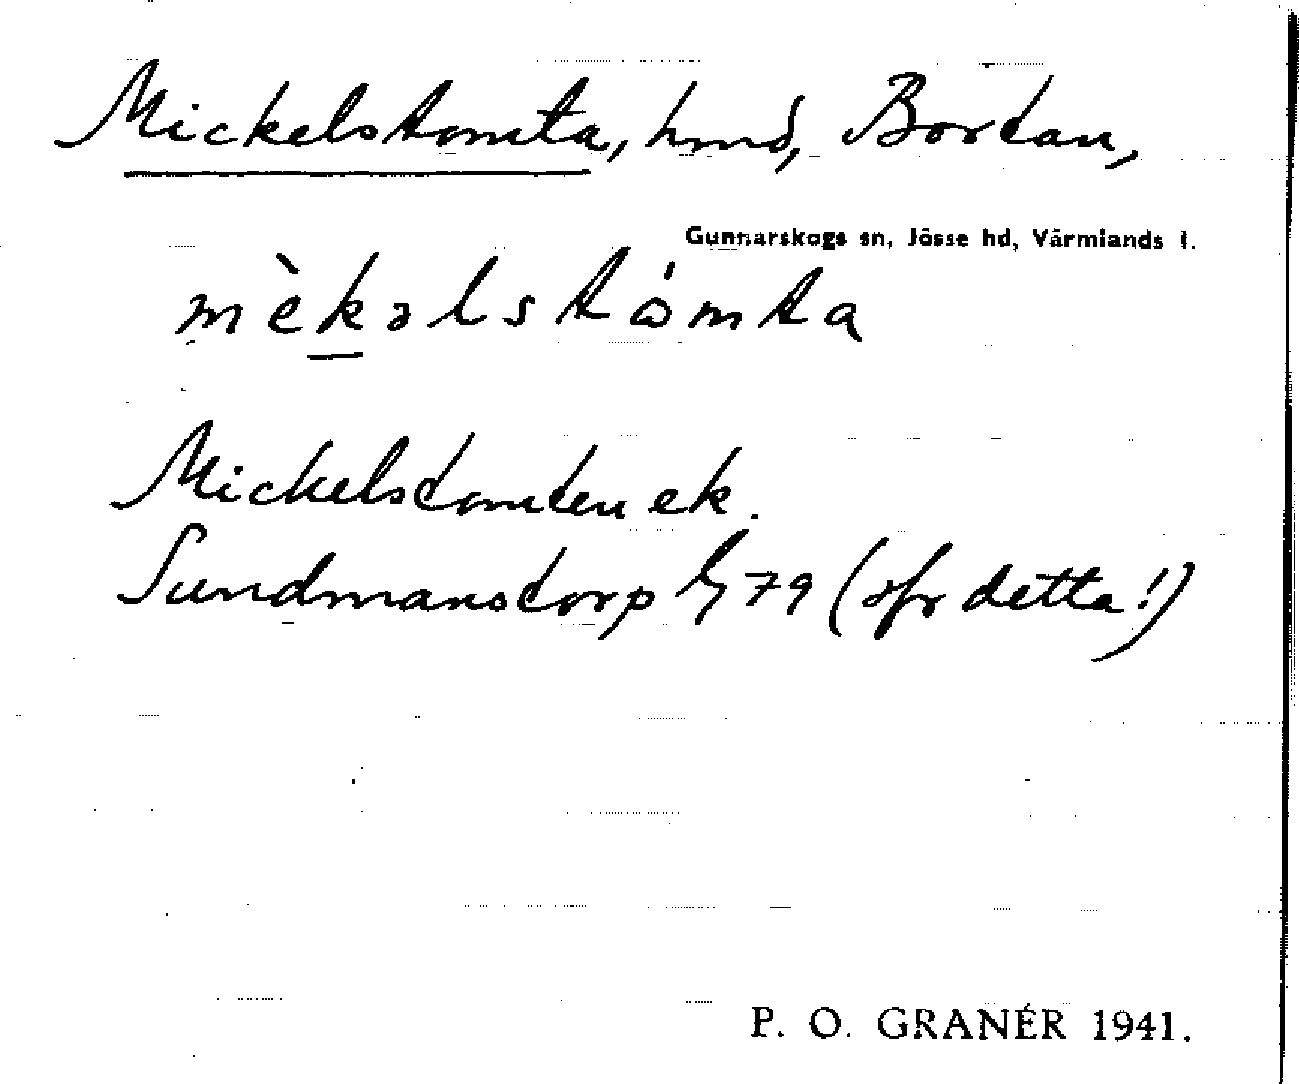 Mickelstomta, hmd, Bortan,
Gunnarskogs sn, Jösse hd, Värmlands l.
mèkəlstómta
Mickelstomten ek.
Sundmanstorp 79 (jfr detta!)
P. O. GRANÉR 1941.